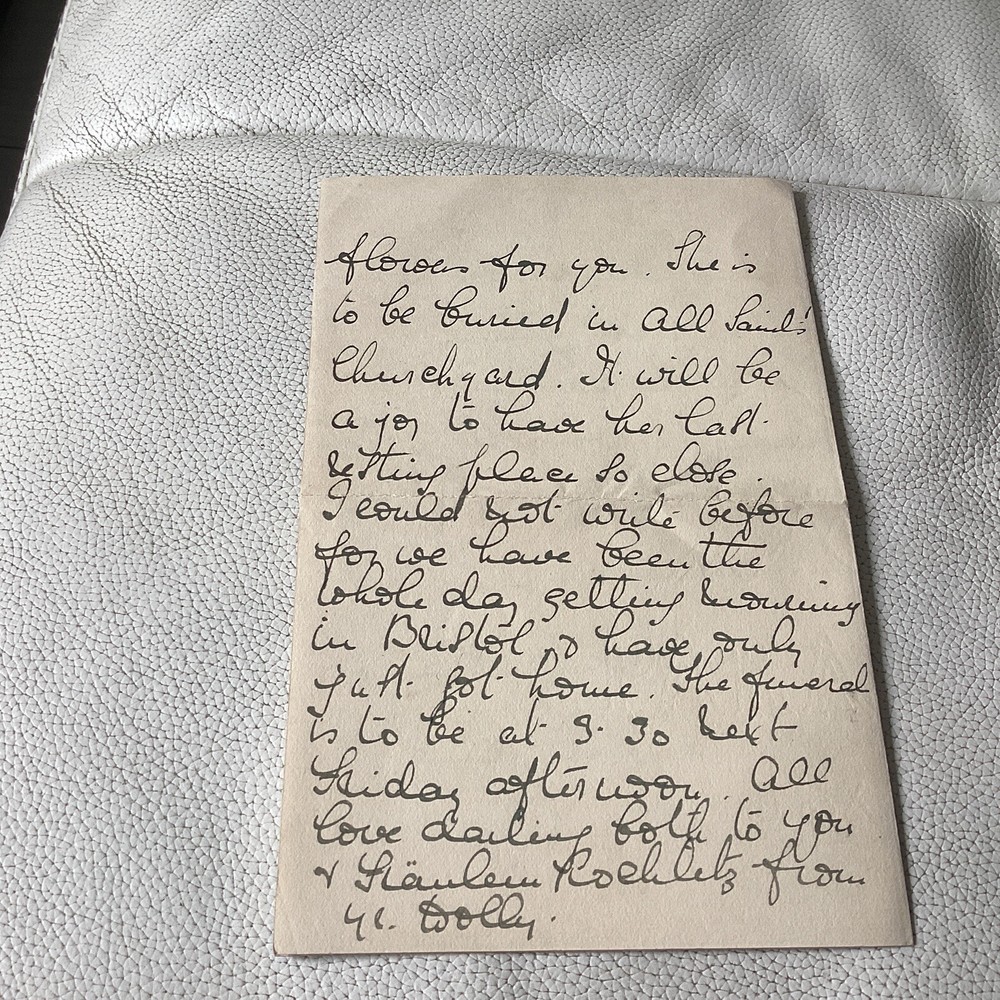 flowers for you. She is
to be buried in All Saints'
Churchyard. It will be
a joy to have her last
resting place so close.
I could not write before
for we have been the
whole day getting mourning
in Bristol & have only
just got home. The funeral
is to be at 3.30 next
Friday afternoon. All
love darling both to you
& Fräulein from
yr. Dolly.